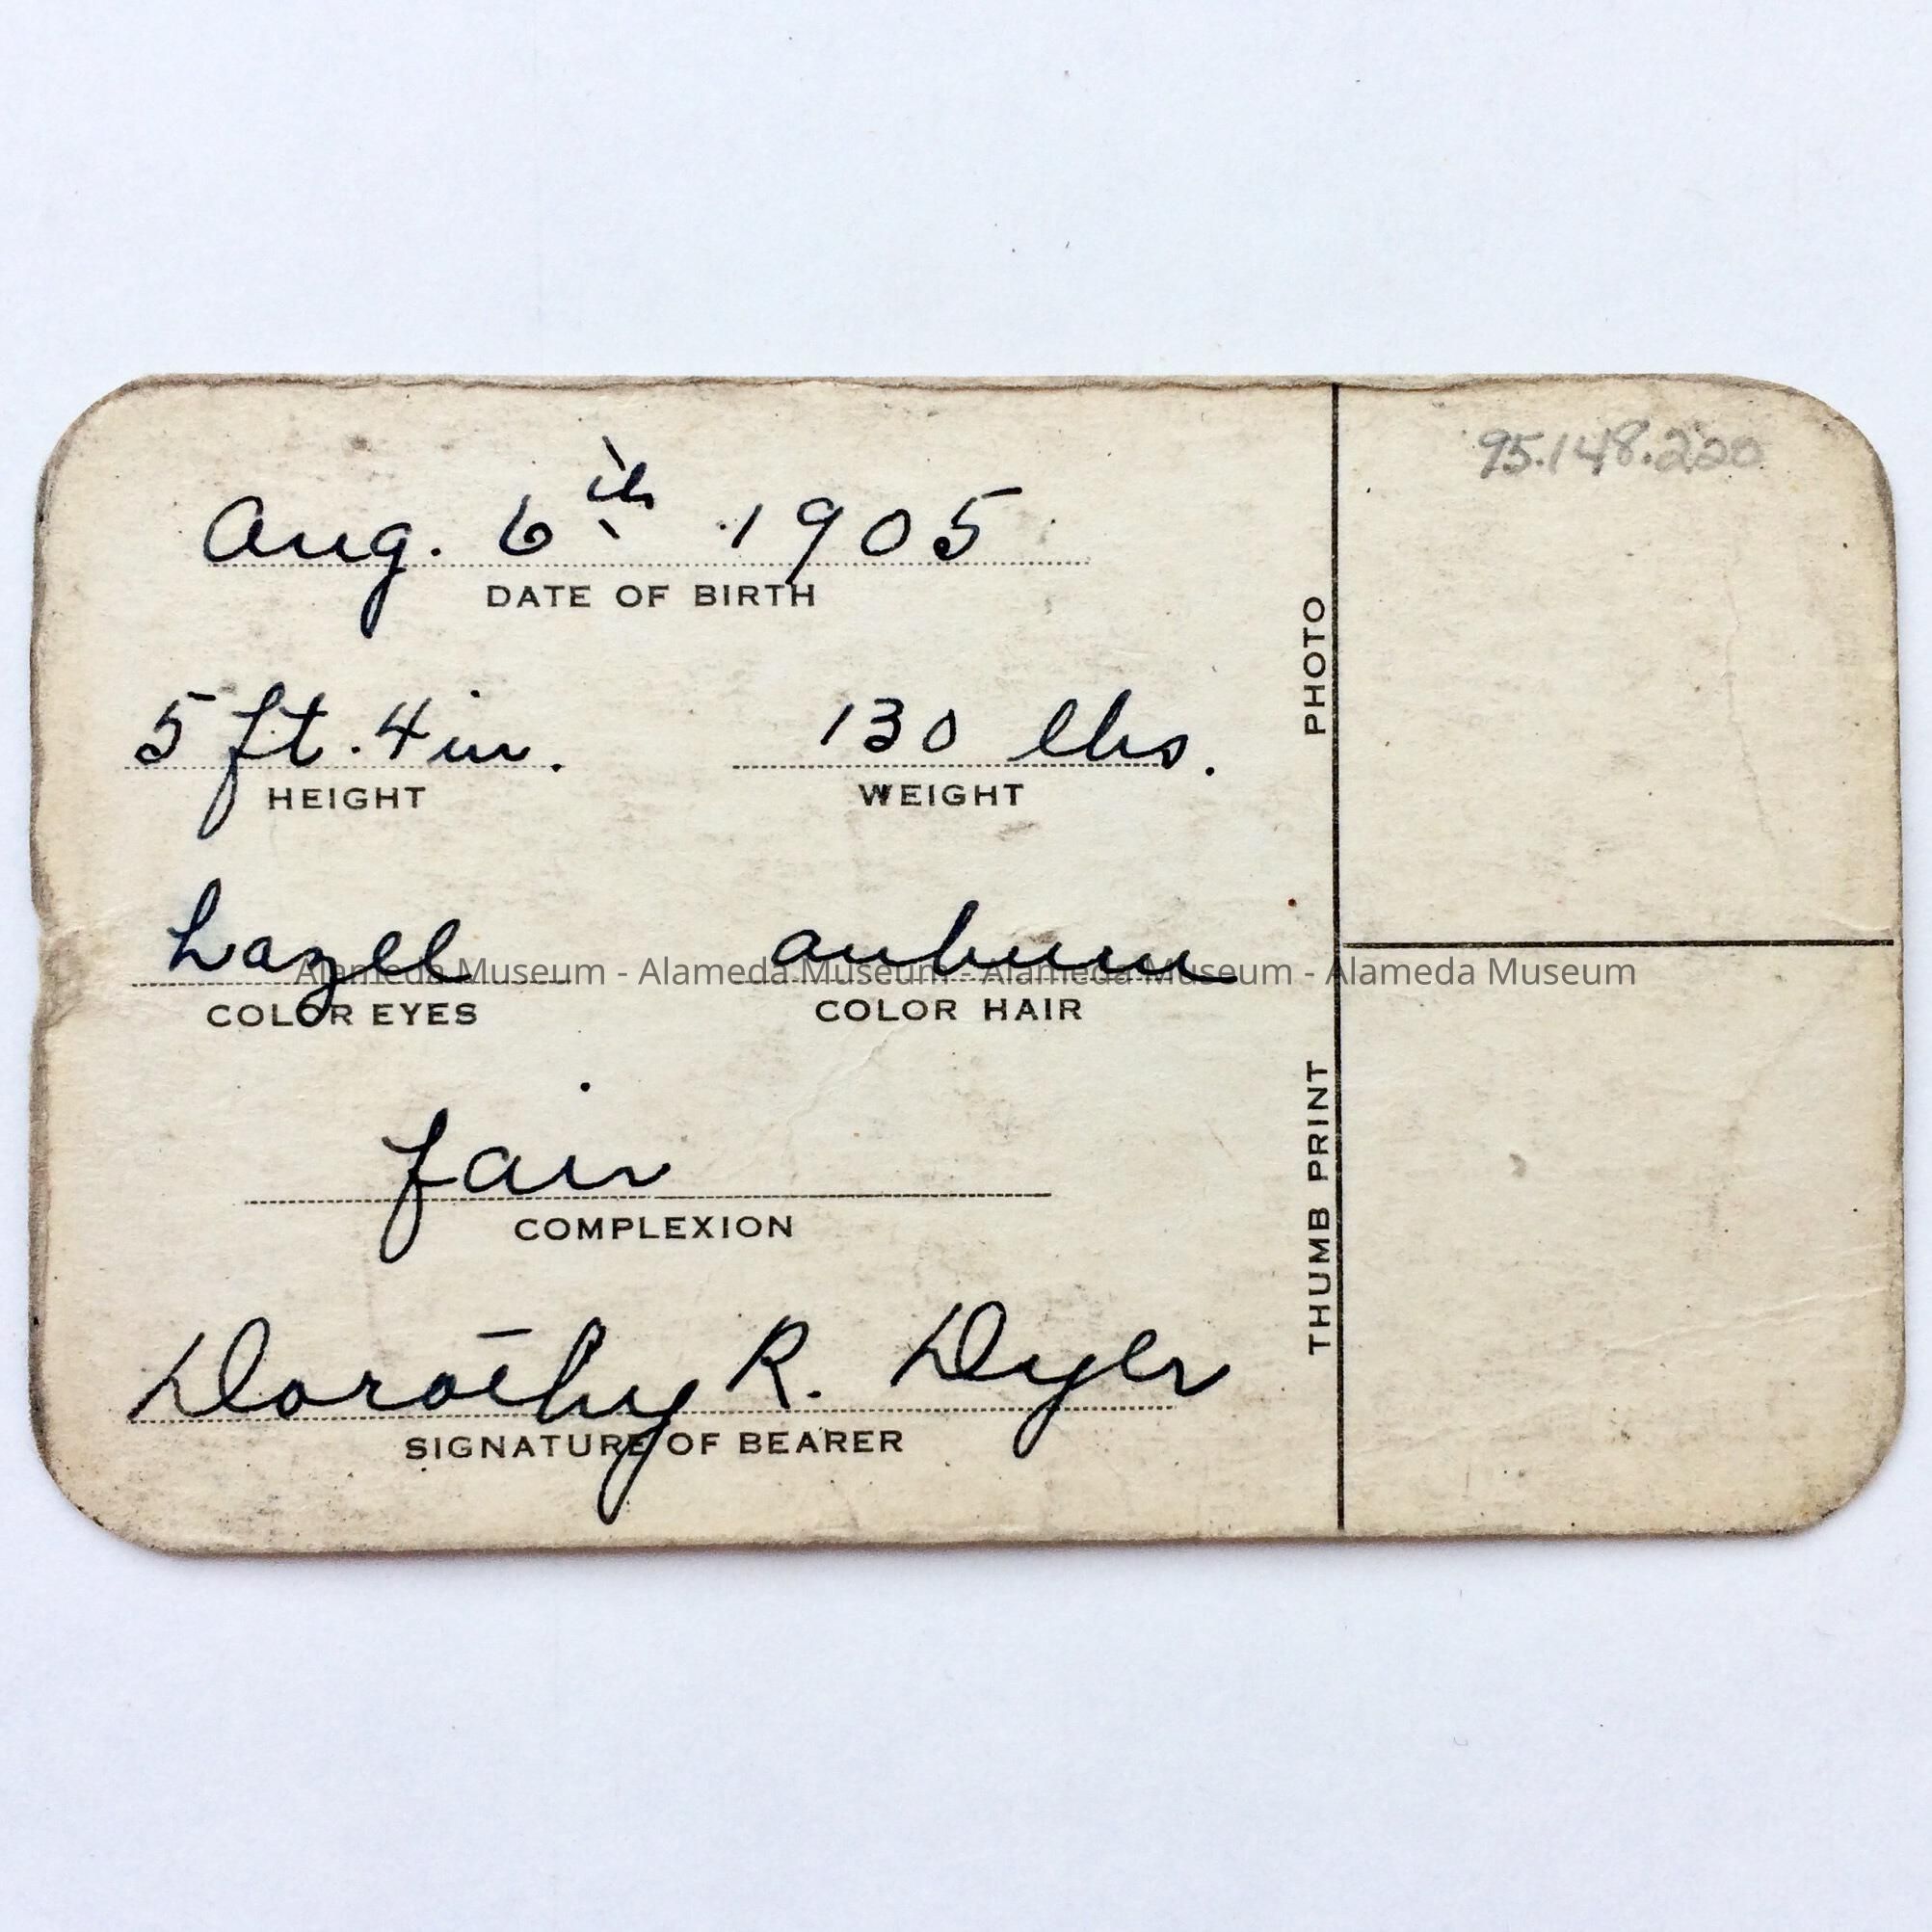 95.148.220
Aug. 6th 1905
DATE OF BIRTH
5 ft. 4 in. 130 lbs.
HEIGHT WEIGHT
PHOTO
hazel auburn
Alameda Museum - Alameda Museum - Alameda Museum - Alameda Museum
COLOR EYES COLOR HAIR
fair
COMPLEXION
THUMB PRINT
Dorothy R. Dyer
SIGNATURE OF BEARER